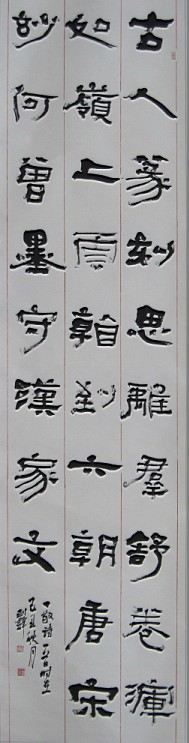 古人篆刻思離羣舒卷渾
如嶺上雲看到六朝唐宋
妙何曾墨守漢家文
丁敬詩一首時在
己丑秋月